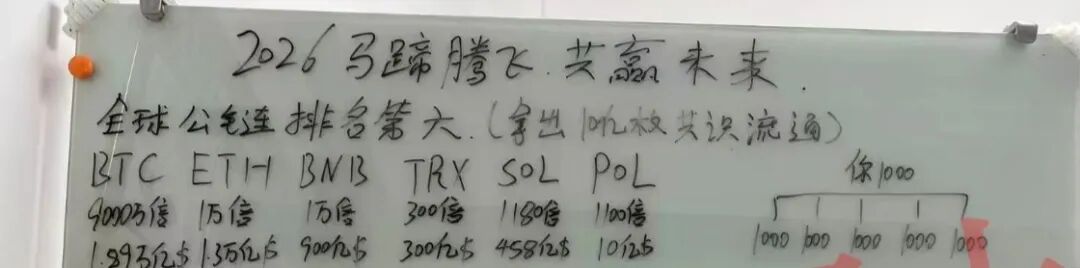 2026马蹄腾飞.共赢未来.
全球公链排名第六.(拿出10亿枚共识流通)
BTC ETH BNB TRX SOL POL
你1000
9000万倍 1万倍 1万倍 300倍 1180倍 1100倍
1.89万亿$ 1.3万亿$ 900亿$ 300亿$ 458亿$ 10亿$
1000 1000 1000 1000 1000